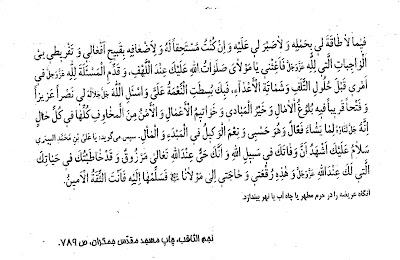 فِيمَا لَا طَاقَةَ لِي بِحَمْلِهِ وَ لَا صَبْرَ لِي عَلَيْهِ وَ إِنْ كُنْتُ مُسْتَحِقّاً لَهُ وَ لِأَضْعَافِهِ بِقَبِيحِ أَفْعَالِي وَ تَفْرِيطِي فِي
الْوَاجِبَاتِ الَّتِي لِلَّهِ عَزَّ وَ جَلَّ فَأَغِثْنِي يَا مَوْلَايَ صَلَوَاتُ اللَّهِ عَلَيْكَ عِنْدَ اللَّهْفِ وَ قَدِّمِ الْمَسْأَلَةَ لِلَّهِ عَزَّ وَ جَلَّ فِي
أَمْرِي قَبْلَ حُلُولِ التَّلَفِ وَ شَمَاتَةِ الْأَعْدَاءِ، فَبِكَ بُسِطَتِ النِّعْمَةُ عَلَيَّ وَ أَسْئَلُ اللَّهَ جَلَّ جَلَالُهُ لِي نَصْراً عَزِيزاً
وَ فَتْحاً قَرِيباً فِيهِ بُلُوغُ الْآمَالِ وَ خَيْرُ الْمَبَادِي وَ خَوَاتِيمُ الْأَعْمَالِ وَ الْأَمْنُ مِنَ الْمَخَاوِفِ كُلِّهَا فِي كُلِّ حَالٍ
إِنَّهُ جَلَّ ثَنَاؤُهُ لِمَا يَشَاءُ فَعَّالٌ وَ هُوَ حَسْبِي وَ نِعْمَ الْوَكِيلُ فِي الْمَبْدَءِ وَ الْمَآلِ. سپس می‌گوید: یا عَلِیّ بْن مُحَمَّد السیمری
سَلَامٌ عَلَيْكَ أَشْهَدُ أَنَّ وَفَاتَكَ فِي سَبِيلِ اللَّهِ وَ أَنَّكَ حَيٌّ عِنْدَ اللَّهِ تَعَالَى مَرْزُوقٌ وَ قَدْ خَاطَبْتُكَ فِي حَيَاتِكَ
الَّتِي لَكَ عِنْدَ اللَّهِ عَزَّ وَ جَلَّ وَ هَذِهِ رُقْعَتِي وَ حَاجَتِي إِلَى مَوْلَانَا فَسَلِّمْهَا إِلَيْهِ فَأَنْتَ الثِّقَةُ الْأَمِينُ.
آنگاه عریضه را در حرم مطهر یا چاه آب یا نهر بیندازد.
نجم الثاقب، چاپ مسجد مقدّس جمکران، ص ۷۸۹.